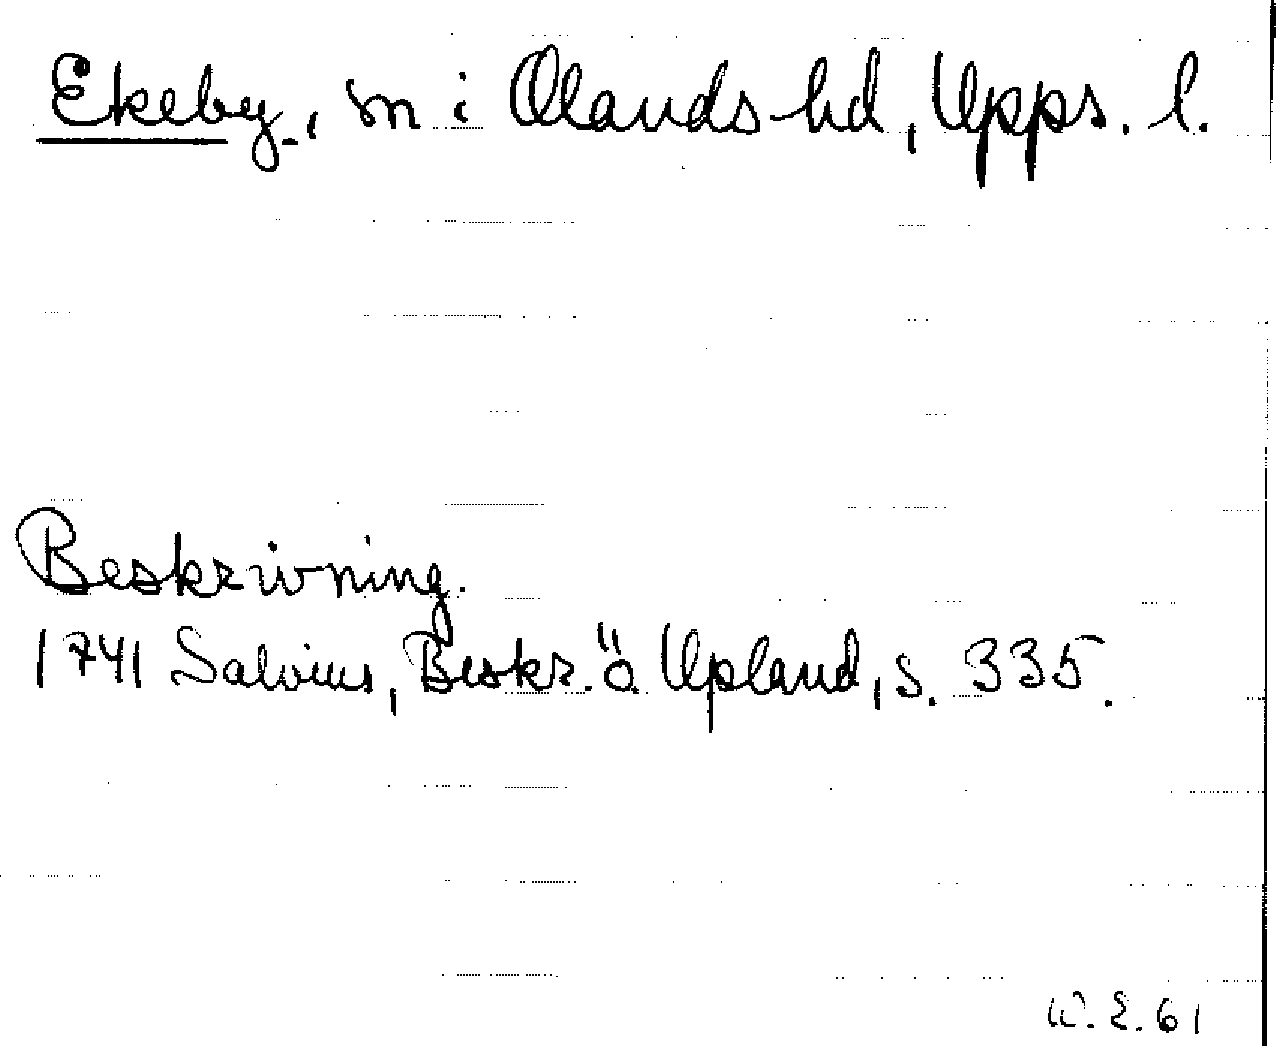 Ekeby, sn i Olands hd, Upps. l.
Beskrivning.
1741 Salvius, Beskr. ö Upland, s. 335.
W.E. 61